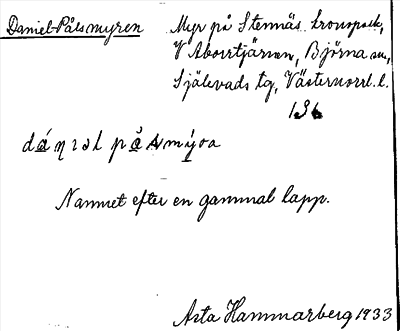 Daniel-Pålsmyren
Myr på Stennäs kronopark,
V Aborrtjärnen, Björna sn,
Själevads tg, Västernorrl. l.
196
Namnet efter en gammal lapp.
Asta Hammarberg 1933